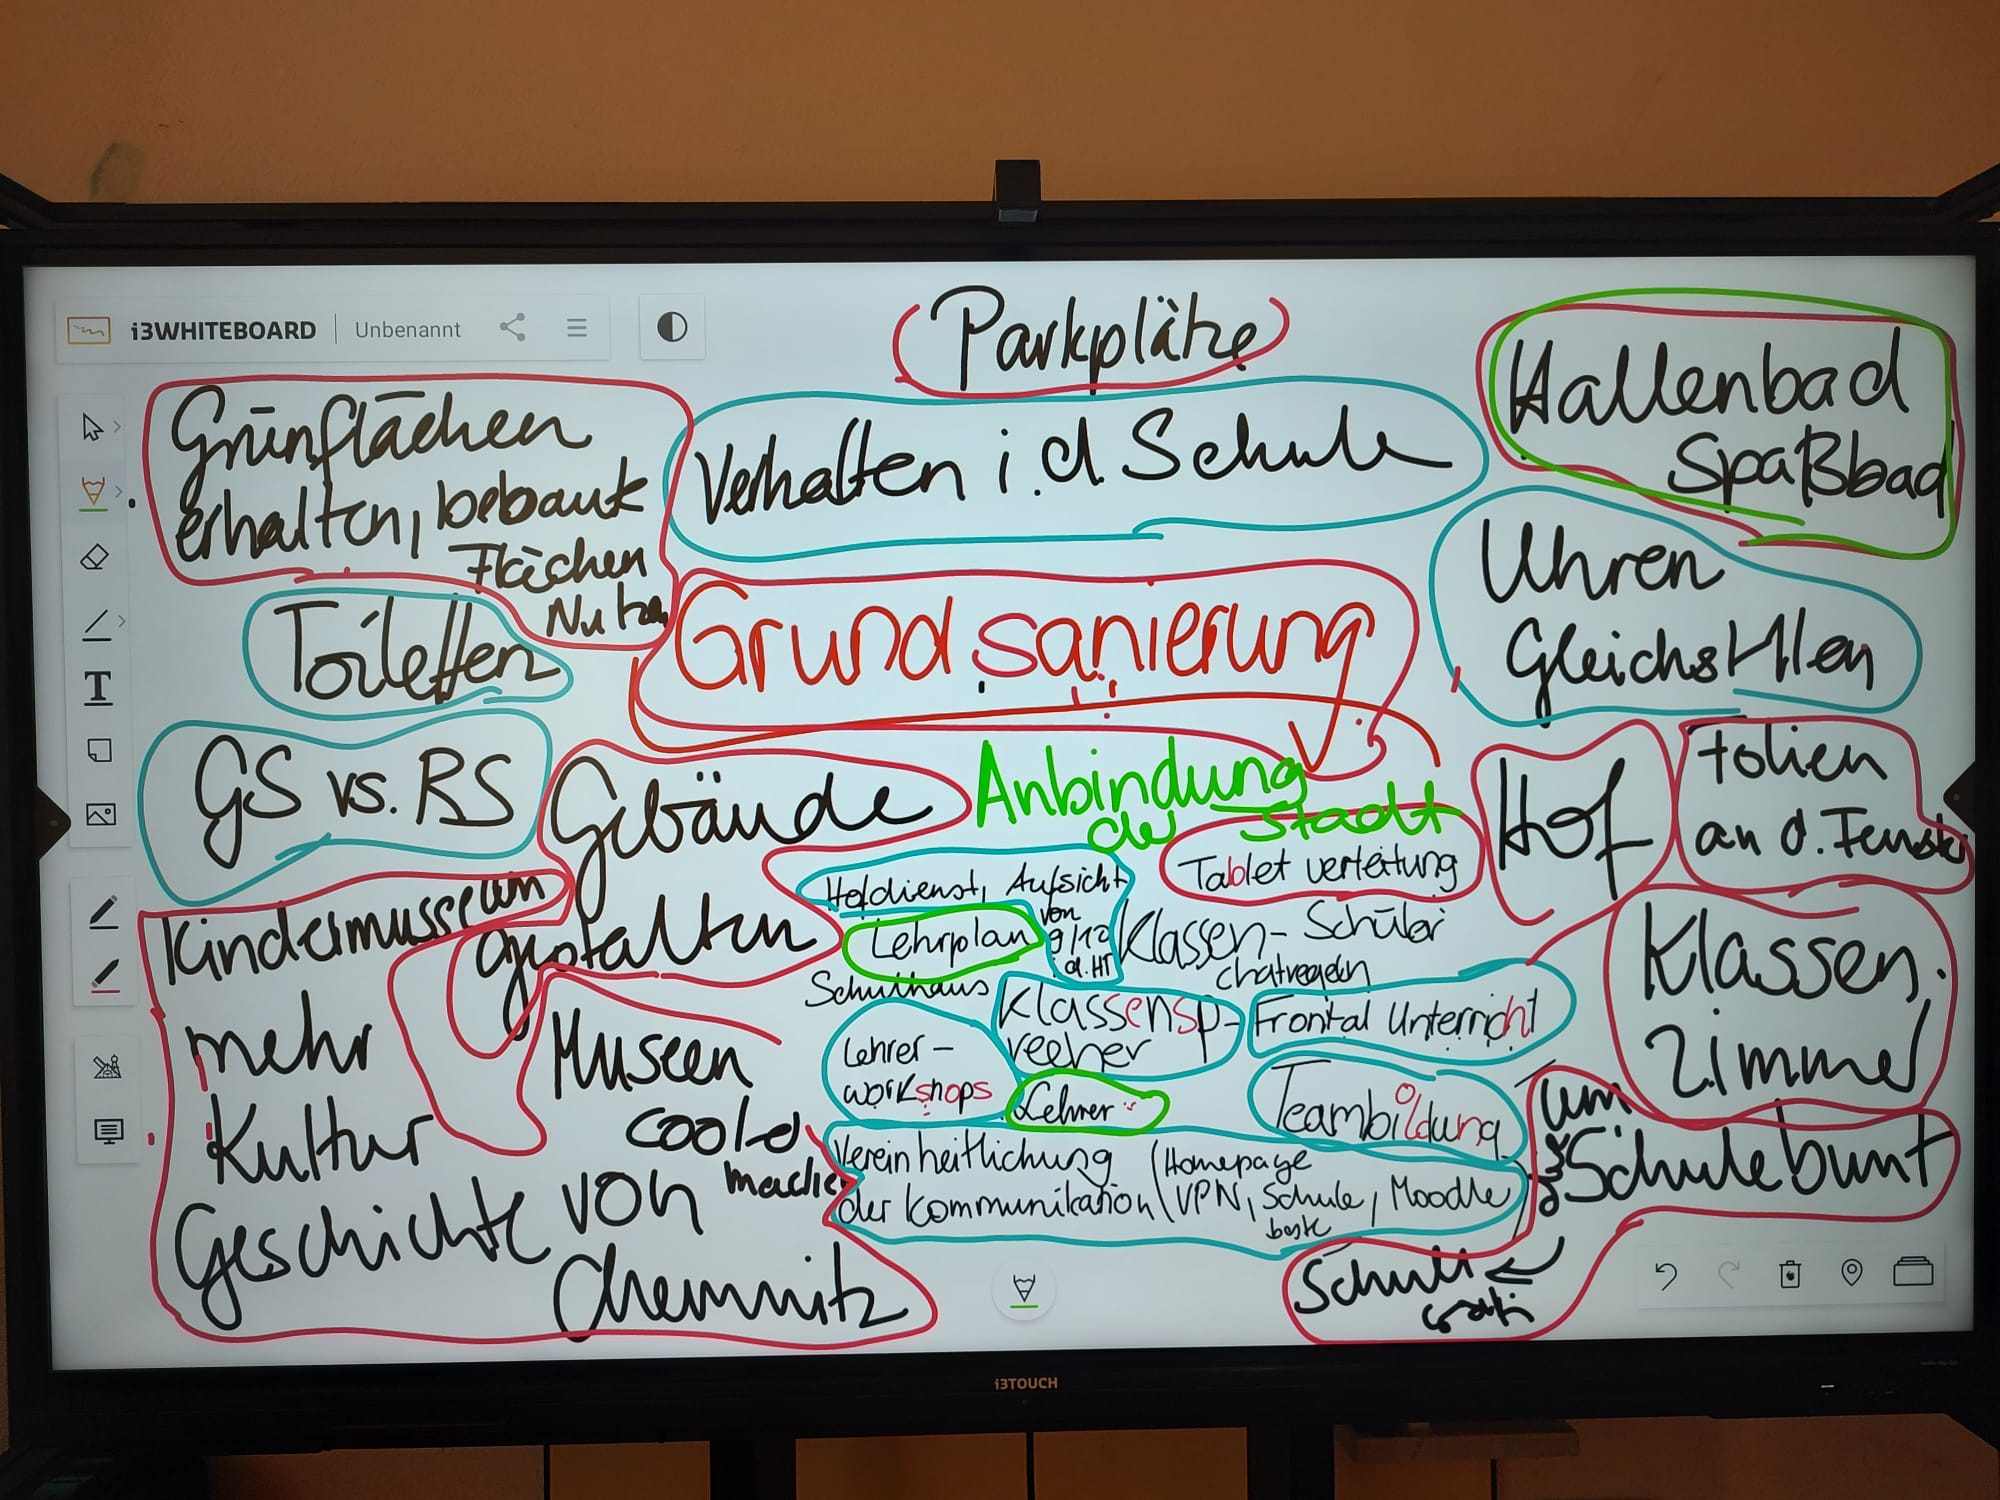 i3WHITEBOARD
Unbenannt
Parkplätze
Hallenbad
Spaßbad
Grünflächen
erhalten, bebaute
Flächen
Nutzen
Verhalten i.d. Schule
Uhren
Gleichstellen
Toiletten
Grundsanierung
GS vs. RS
Gebäude
gestalten
Anbindung
der Stadt
Hof
Folien
an d. Fenster
Tablet verteitung
Hofdienst, Aufsicht
von
9/10
d. HT
Lehrplan
Schulhaus
Klassen- Schüler
chatregeln
Klassen-
zimmer
Kindermusseum
mehr
Kultur
Museen
cooler
machen
Geschichte von
Chemnitz
Klassensp-
recher
Frontal Unterricht
Lehrer-
workshops
Lehrer
Teambildung
Vereinheitlichung
der Kommunikation
(Homepage
VPN, Schule, Moodle)
Schulebunt
T
i3TOUCH